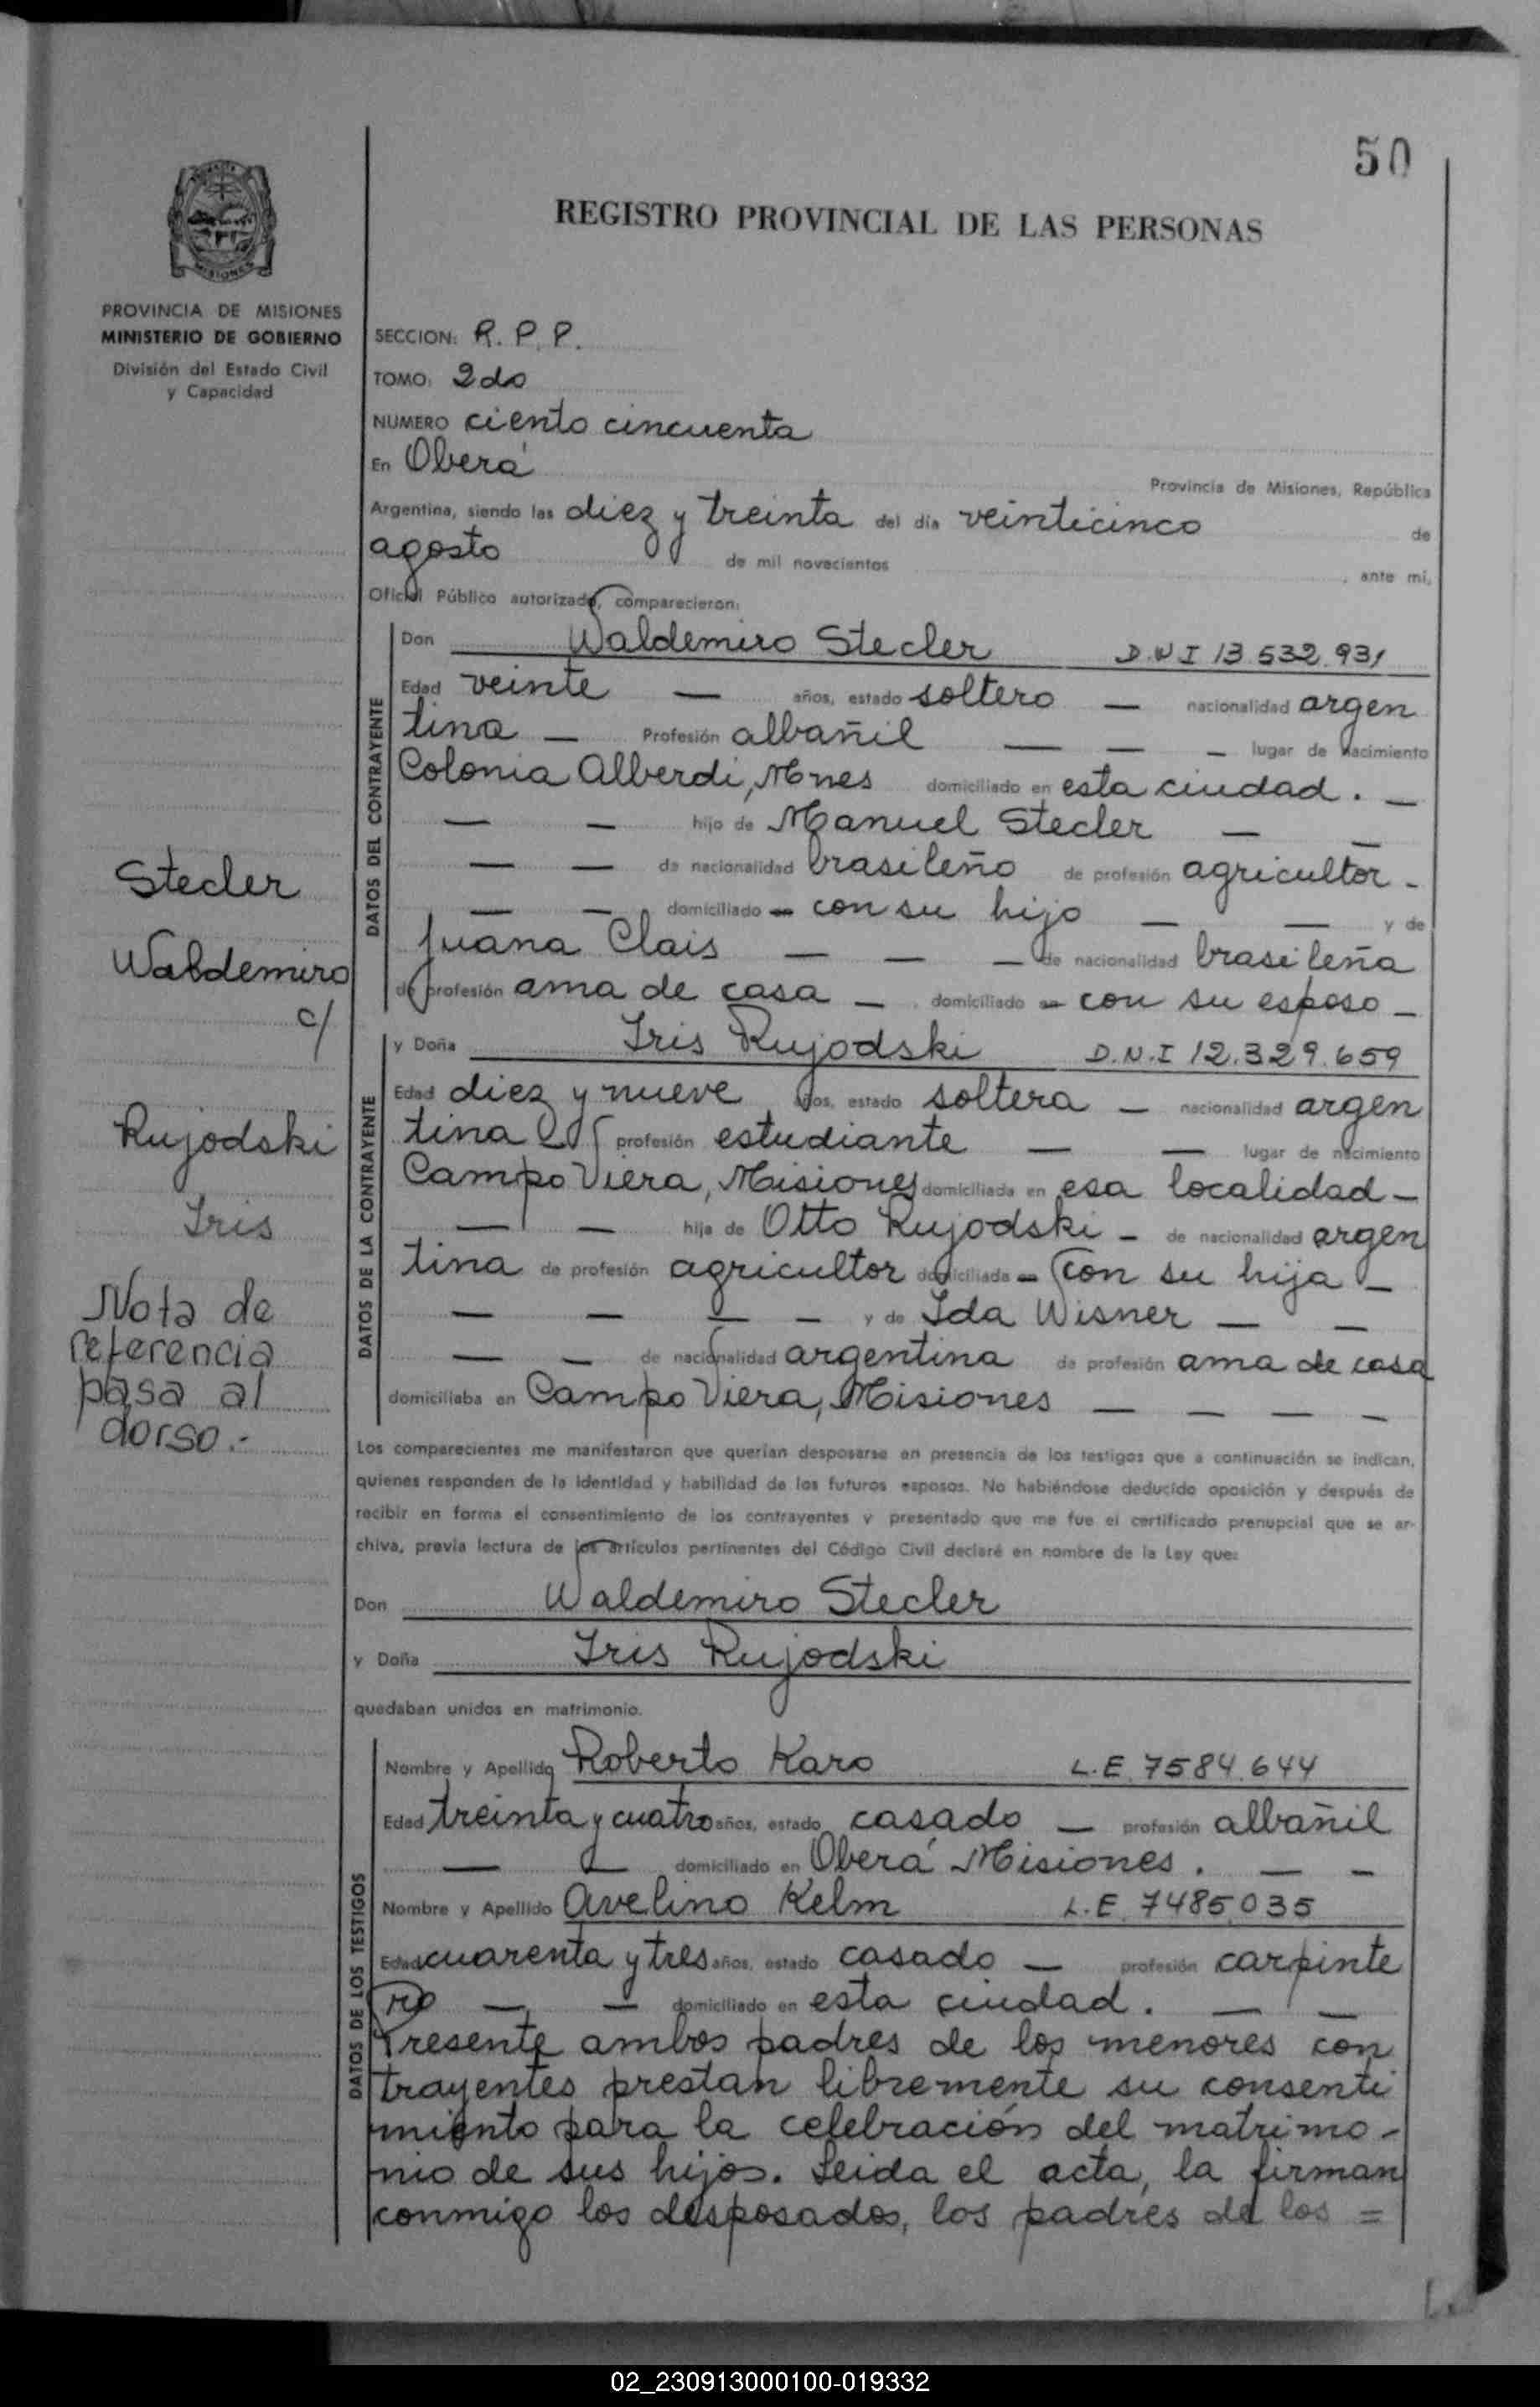 50
REGISTRO PROVINCIAL DE LAS PERSONAS
MISIONES
PROVINCIA DE MISIONES
MINISTERIO DE GOBIERNO
División del Estado Civil
y Capacidad
SECCION: R. P. P.
TOMO: 2do
NUMERO ciento cincuenta
En Oberá
Provincia de Misiones, República
Argentina, siendo las diez y treinta del día veinticinco de
agosto de mil novecientos , ante mi,
Oficial Público autorizado, comparecieron:
DATOS DEL CONTRAYENTE
Don Waldemiro Stecler D.N.I 13.532.931
Edad veinte — años, estado soltero — nacionalidad argen
tina — Profesión albañil — — — lugar de nacimiento
Colonia Alberdi, Mnes domiciliado en esta ciudad. —
— — hijo de Manuel Stecler — —
— — de nacionalidad brasileño de profesión agricultor -
— — domiciliado — con su hijo — — y de
Juana Clais — — — de nacionalidad brasileña
de profesión ama de casa — domiciliado — con su esposo —
DATOS DE LA CONTRAYENTE
y Doña Iris Rujodski D.N.I 12.329.659
Edad diez y nueve años, estado soltera — nacionalidad argen
tina profesión estudiante — — lugar de nacimiento
Campo Viera, Misiones domiciliada en esa localidad —
— — hija de Otto Rujodski — de nacionalidad argen
tina de profesión agricultor domiciliada — con su hija —
— — — — y de Ida Wisner — —
— — de nacionalidad argentina de profesión ama de casa
domiciliaba en Campo Viera, Misiones — — — —
Stecler
Waldemiro
c/
Rujodski
Iris
Nota de
referencia
pasa al
dorso.-
Los comparecientes me manifestaron que querían desposarse en presencia de los testigos que a continuación se indican,
quienes responden de la identidad y habilidad de los futuros esposos. No habiéndose deducido oposición y después de
recibir en forma el consentimiento de los contrayentes y presentado que me fue el certificado prenupcial que se ar-
chiva, previa lectura de los artículos pertinentes del Código Civil declaré en nombre de la Ley que:
Don Waldemiro Stecler
y Doña Iris Rujodski
quedaban unidos en matrimonio.
DATOS DE LOS TESTIGOS
Nombre y Apellido Roberto Karo L.E. 7584.644
Edad treinta y cuatro años, estado casado — profesión albañil
— — domiciliado en Oberá Misiones. — —
Nombre y Apellido Avelino Kelm L.E. 7485.035
Edad cuarenta y tres años, estado casado — profesión carpinte
ro — — domiciliado en esta ciudad. — —
Presente ambos padres de los menores con
trayentes prestan libremente su consenti
miento para la celebración del matrimo-
nio de sus hijos. Leida el acta, la firman
conmigo los desposados, los padres de los =
02_230913000100-019332